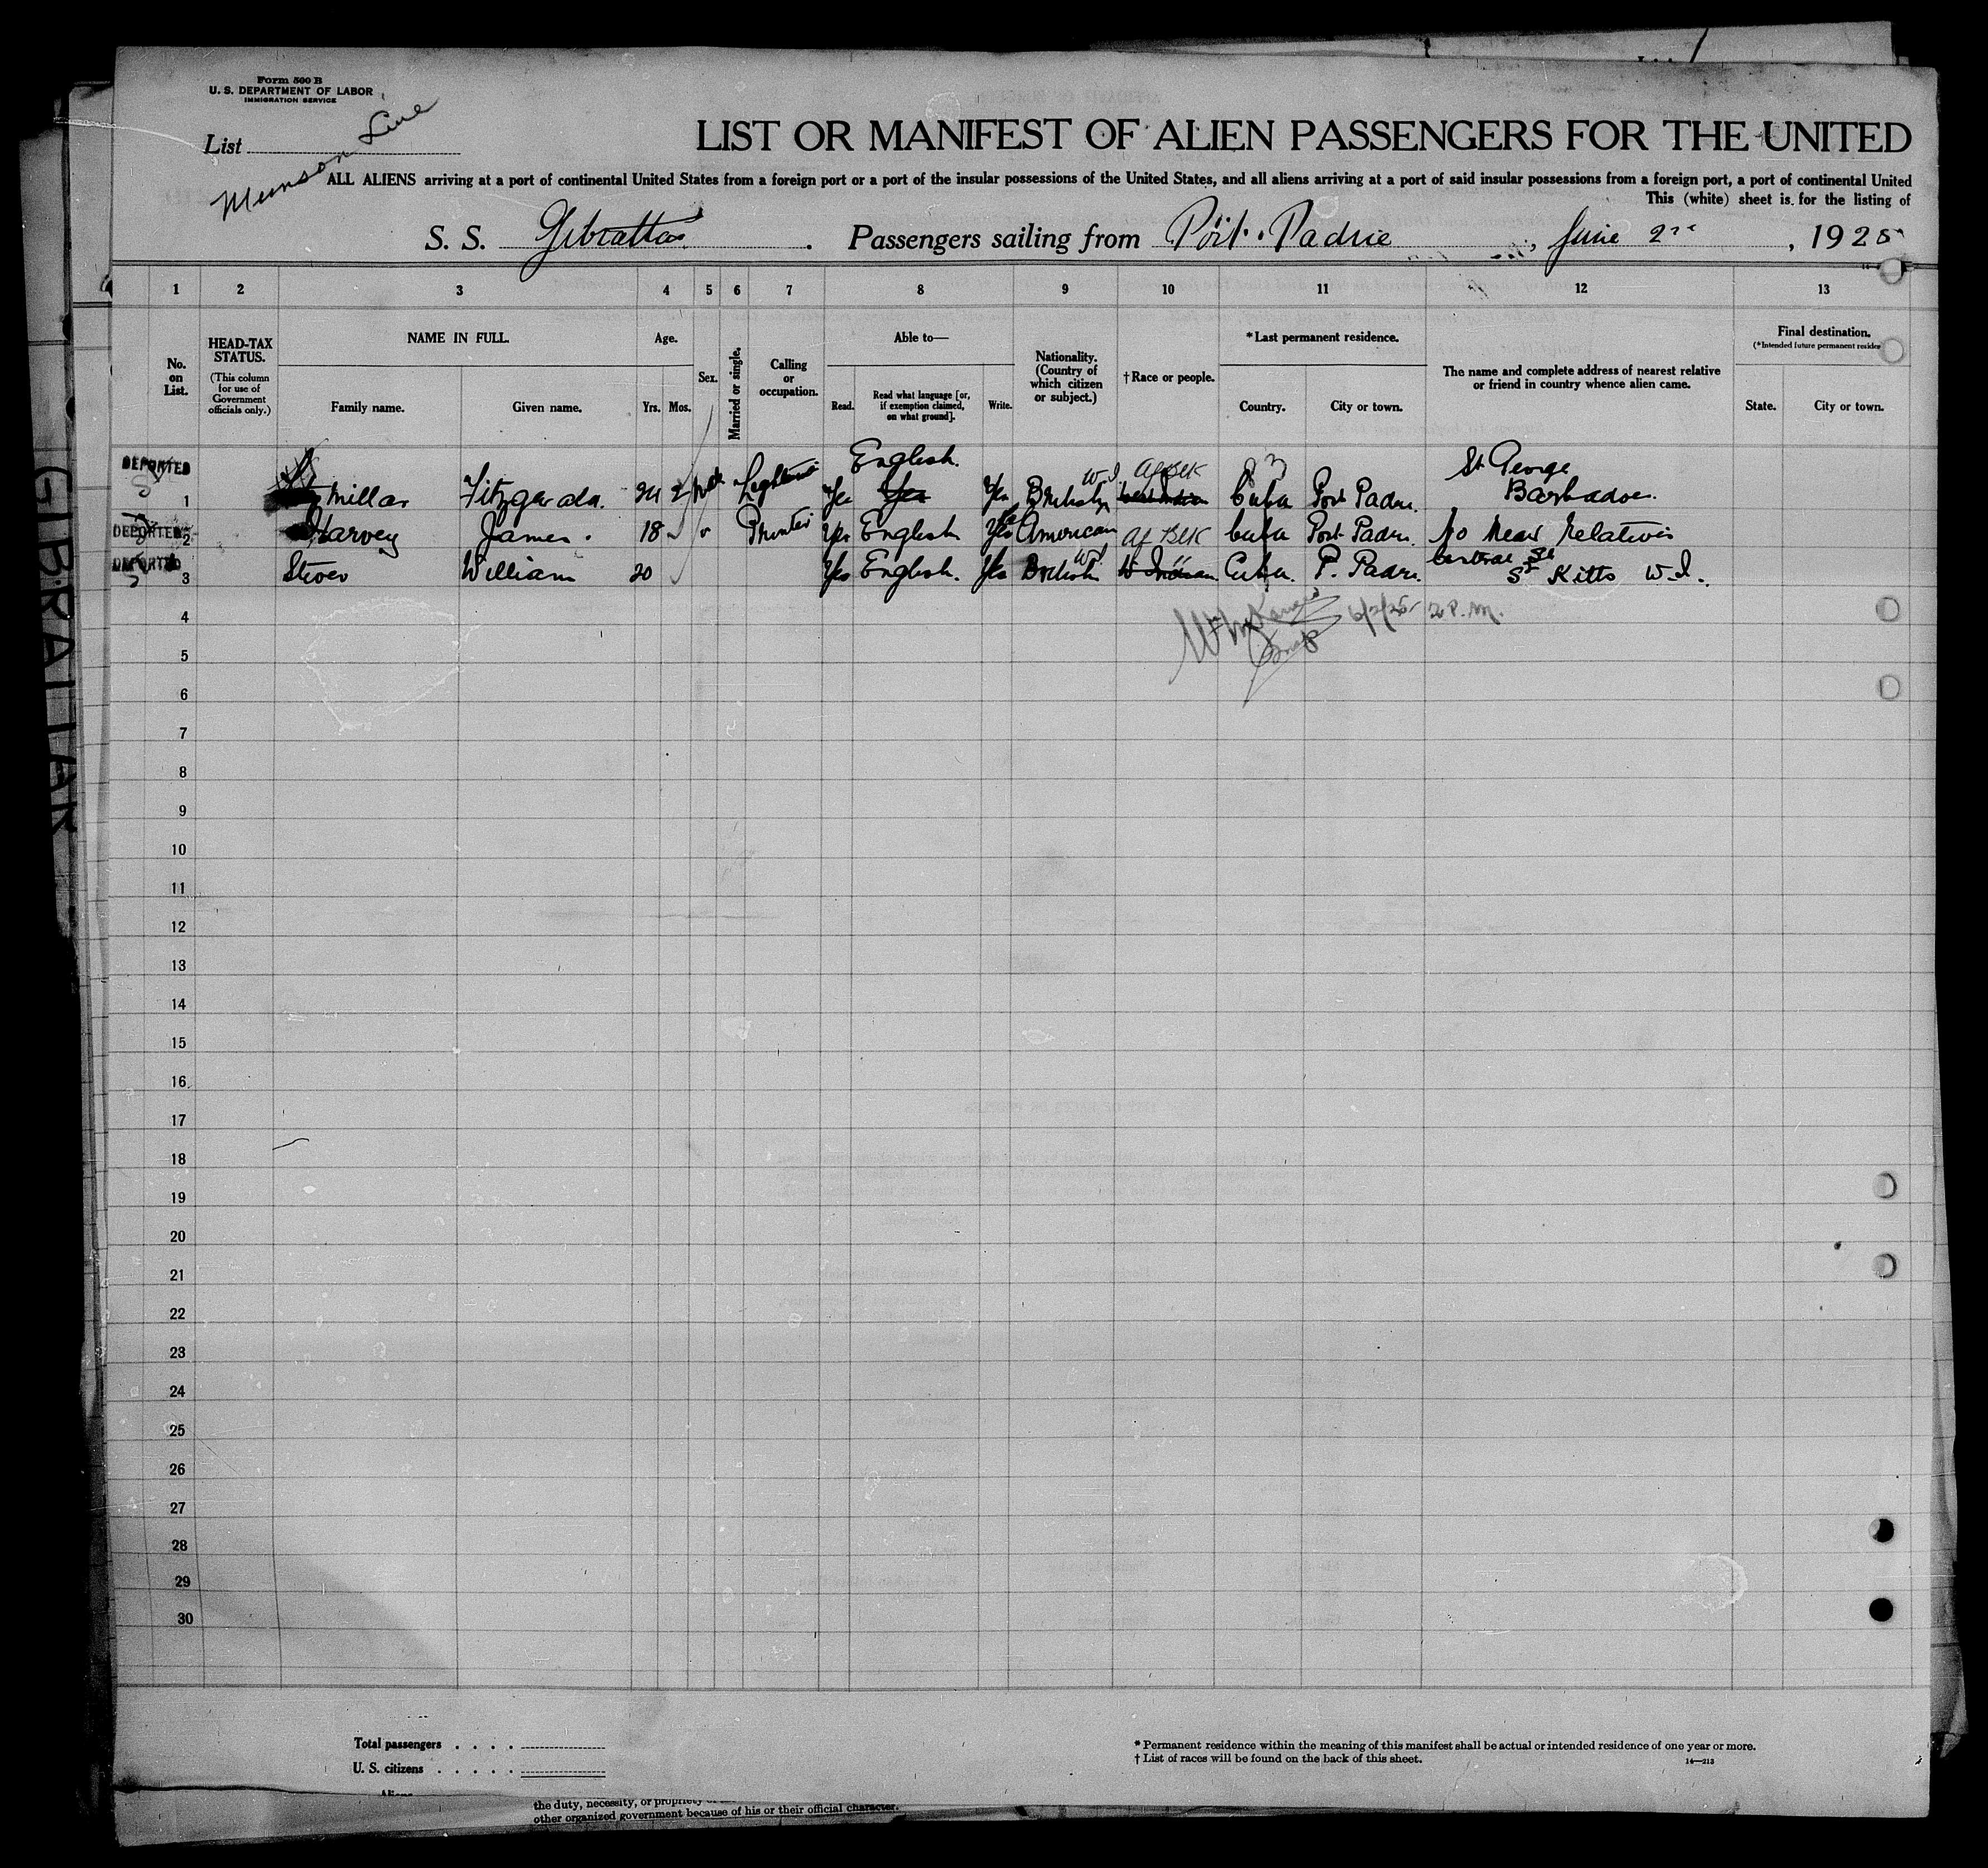 Form 500 B
U. S. DEPARTMENT OF LABOR
IMMIGRATION SERVICE
List
Munson Line
LIST OR MANIFEST OF ALIEN PASSENGERS FOR THE UNITED
ALL ALIENS arriving at a port of continental United States from a foreign port or a port of the insular possessions of the United States, and all aliens arriving at a port of said insular possessions from a foreign port, a port of continental United
This (white) sheet is for the listing of
S. S. Gibraltar. Passengers sailing from Port Padrie, June 2nd, 1925
1 2 3 4 5 6 7 8 9 10 11 12 13
No. on List.
HEAD-TAX STATUS.
(This column for use of Government officials only.)
NAME IN FULL.
Family name. Given name.
Age.
Yrs. Mos.
Sex.
Married or single.
Calling or occupation.
Able to—
Read. Read what language [or, if exemption claimed, on what ground]. Write.
Nationality. (Country of which citizen or subject.)
†Race or people.
*Last permanent residence.
Country. City or town.
The name and complete address of nearest relative or friend in country whence alien came.
Final destination.
(*Intended future permanent residen
State. City or town.
DEPORTED English. W I Af Blk St George
1 Millar Fitzgerald. 24 2 Yes Yes Yes British West Indian Cuba Port Padre. Barbados.
DEPORTED 2 Harvey James. 18 Printer Yes English Yes American Af Blk Cuba Port Padre. No Near Relatives
DEPORTED W I Central St
3 Stover William 20 Yes English. Yes British W Indian Cuba. P. Padre. St Kitts W. I.
6/2/25 2 P. M.
4
5
6
7
8
9
10
11
12
13
14
15
16
17
18
19
20
21
22
23
24
25
26
27
28
29
30
GIBRALTAR
Total passengers
U. S. citizens
Aliens
* Permanent residence within the meaning of this manifest shall be actual or intended residence of one year or more.
† List of races will be found on the back of this sheet.
14—213
the duty, necessity, or propriety of
other organized government because of his or their official character.